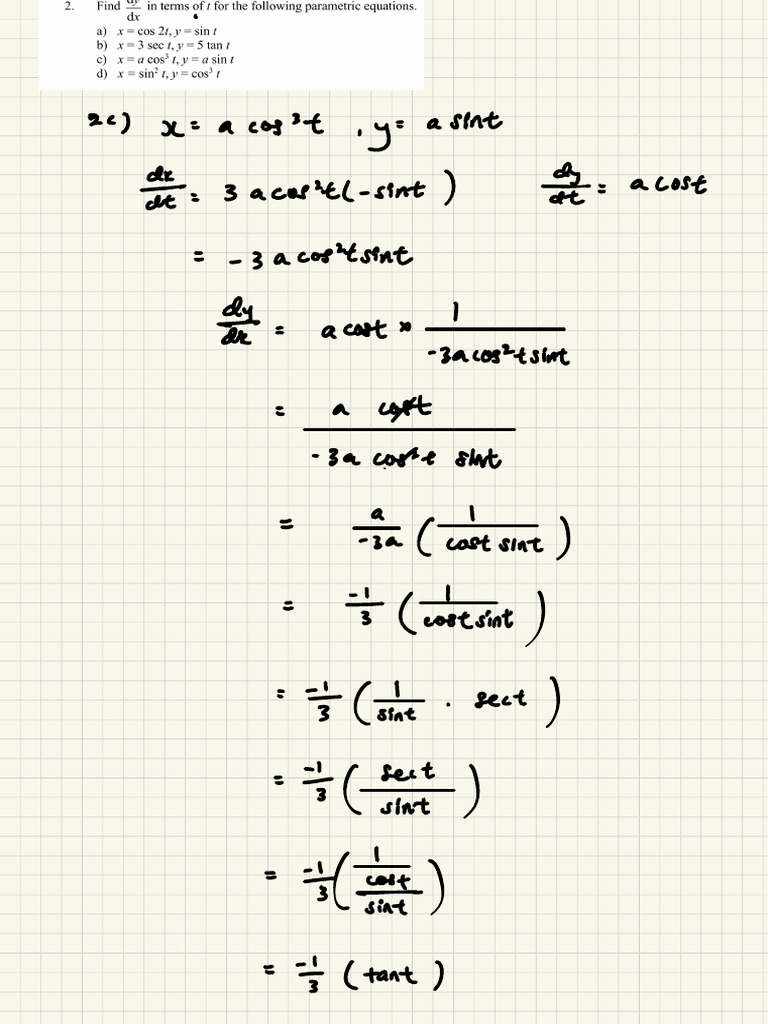 2. Find dy/dx in terms of t for the following parametric equations.
a) x = cos 2t, y = sin t
b) x = 3 sec t, y = 5 tan t
c) x = a cos³ t, y = a sin t
d) x = sin² t, y = cos³ t
2c) x = a cos³t , y = a sint
dx/dt = 3 a cos²t (-sint) dy/dt = a cost
= -3 a cos²t sint
dy/dx = a cost × 1/(-3a cos²t sint)
= a cost / (-3a cos²t sint)
= a/(-3a) (1/(cost sint))
= -1/3 (1/(cost sint))
= -1/3 (1/sint · sect)
= -1/3 (sect/sint)
= -1/3 ((1/cost)/sint)
= -1/3 (tant)